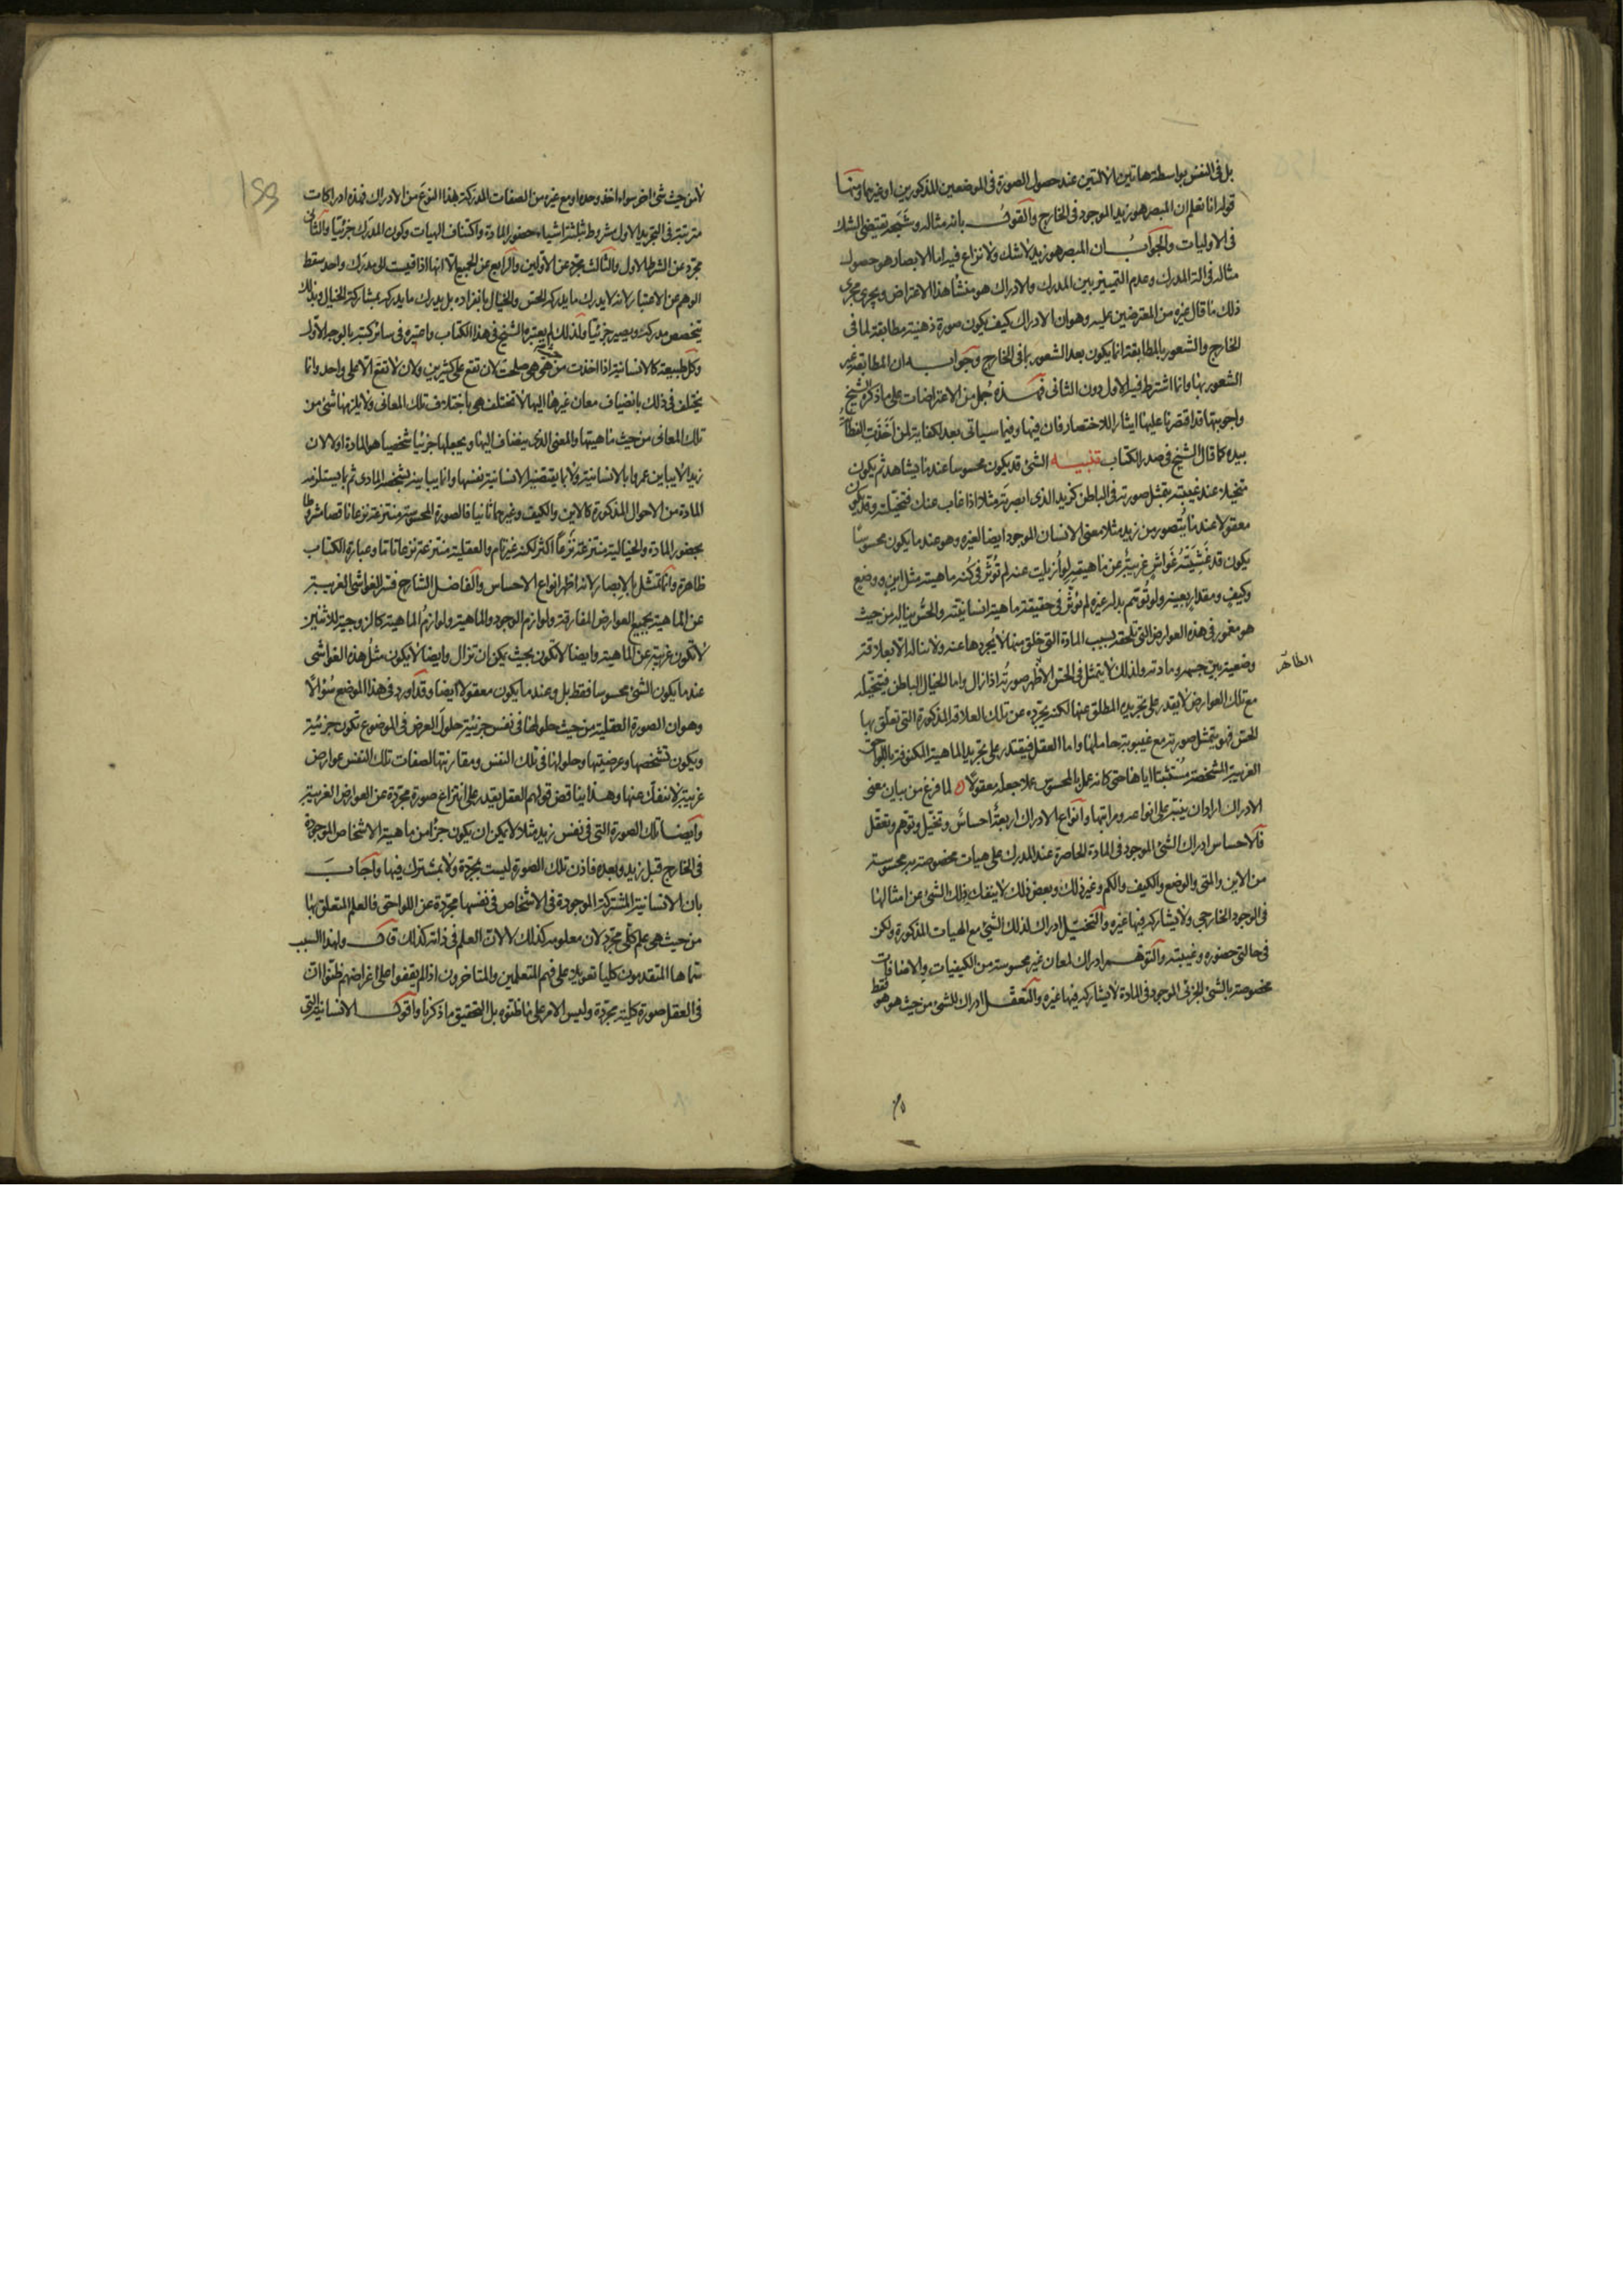 بل فى النفس بواسطة هاتين الآلتين عند حصول الصورة فى الموضعين المذكورين او غيرهما ومنها
قوله انا نعلم ان المبصر هو زيد الموجود فى الخارج والقول بانه مثاله وشبحه يقتضى الشك
فى الاوليات والجواب ان المبصر هو زيد لا شك ولا نزاع فيه اما الابصار هو حصول
مثاله فى الة المدرك وعدم التمييز بين المدرك والادراك هو منشا هذا الاعتراض ويجرى مجرى
ذلك ما قال غيره من المعترضين عليه وهو ان الادراك كيف يكون صورة ذهنية مطابقة لما فى
الخارج والشعور بالمطابقة انما يكون بعد الشعور بما فى الخارج وجوابه ان المطابقة غير
الشعور بها وانما اشترط فيه الاول دون الثانى فهذه جمل من الاعتراضات على ما ذكره الشيخ
واجوبتها قد اقتصرنا عليها ايثارا للاختصار فان فيها وفيما سياتى بعد لكفاية لمن اخذت الفطانة
بيده كما قال الشيخ فى صدر الكتاب تنبيه الشئ قد يكون محسوسا عندما يشاهد ثم يكون
متخيلا عند غيبته بتمثل صورته فى الباطن كزيد الذى ابصرته مثلا اذا غاب عنك فتخيلته وقد يكون
معقولا عندما يتصور من زيد مثلا معنى الانسان الموجود ايضا لغيره وهو عندما يكون محسوسا
يكون قد غشيته غواش غريبة عن ماهيته لو ازيلت عنه لم تؤثر فى كنه ماهيته مثل اين ووضع
وكيف ومقدار بعينه ولو توهم بدله غيره لم يؤثر فى حقيقة ماهية انسانيته والحس يناله من حيث
هو مغمور فى هذه العوارض التى تلحقه بسبب المادة التى خلق منها لا يجردها عنه ولا يناله الا بعلاقة
وضعية بين حسه ومادته ولذلك لا يتمثل فى الحس الظاهر صورته اذا زال واما الخيال الباطن فيتخيله
الظاهر
مع تلك العوارض لا يقدر على تجريده المطلق عنها لكنه يجرده عن تلك العلاقة المذكورة التى تعلق بها
الحس فهو يتمثل صورته مع غيبوبة حاملها واما العقل فيقتدر على تجريد الماهية المكنوفة باللواحق
الغريبة المشخصة مستثبتا اياها حتى كانه عمل بالمحسوس عملا جعله معقولا لما فرغ من بيان معنى
الادراك اراد ان ينبه على انواعه ومراتبها وانواع الادراك اربعة احساس وتخيل وتوهم وتعقل
فالاحساس ادراك الشئ الموجود فى المادة الحاضرة عند المدرك على هيات مخصوصة به محسوسة
من الاين والمتى والوضع والكيف والكم وغير ذلك وبعض ذلك لا ينفك ذلك الشئ عن امثالها
فى الوجود الخارجى ولا يشاركه فيها غيره والتخيل ادراك لذلك الشئ مع الهيات المذكورة ولكن
فى حالتى حضوره وغيبته والتوهم ادراك لمعان غير محسوسة من الكيفيات والاضافات
مخصوصة بالشئ الجزئى الموجود فى المادة لا يشاركه فيها غيره والتعقل ادراك للشئ من حيث هو هو فقط
لا من حيث شئ اخر سواء اخذ وحده او مع غيره من الصفات المدركة هذا النوع من الادراك فهذه ادراكات
مترتبة فى التجريد الاول مشروط بثلثة اشياء حضور المادة واكتناف الهيات وكون المدرك جزئيا والثانى
مجرد عن الشرط الاول والثالث مجرد عن الاولين والرابع عن الجميع الا انها اذا قيست الى مدرك واحد سقط
الوهم عن الاعتبار لانه لا يدرك ما يدركه الحس والخيال بانفراده بل يدرك ما يدركه بمشاركة الخيال وبذلك
يتخصص مدركه ويصير جزئيا ولذلك لم يعتبره الشيخ فى هذا الكتاب واعتبره فى سائر كتبه بالوجه الاول
وكل طبيعة كالانسانية اذا اخذت من حيث هى هى صلحت لان تقع على كثيرين ولان لا تقع الا على واحد وانما
يختلف فى ذلك بانضياف معان غيرها اليها لا تختلف هى باختلاف تلك المعانى ولا يلزمها شئ من
تلك المعانى من حيث ماهيتها والمعنى الذى ينضاف اليها ويجعلها جزئيا شخصيا هو المادة اولا لان
زيدا لا يباين عمروا بالانسانية ولا بما يقتضيه الانسانية نفسها وانما يباينه بشخصه المادى ثم بما يستلزمه
المادة من الاحوال المذكورة كالاين والكيف وغيرهما ثانيا فالصورة المحسوسة منتزعة نزعا ناقصا مشروطا
بحضور المادة والخيالية منتزعة نزعا اكثر لكنه غير تام والعقلية منتزعة نزعا تاما وعبارة الكتاب
ظاهرة وانما تمثل بالابصار لانه اظهر انواع الاحساس والفاضل الشارح فسر الغواشى الغريبة
عن الماهية بجميع العوارض المفارقة ولوازم الوجود والماهية ولوازم الماهية كالزوجية للاثنين
لا تكون غريبة عن الماهية وايضا لا تكون بحيث يمكن ان تزال وايضا لا يكون مثل هذه الغواشى
عندما يكون الشئ محسوسا فقط بل وعندما يكون معقولا ايضا وقد اورد فى هذا الموضع سؤالا
وهو ان الصورة العقلية من حيث حلولها فى نفس جزئية حلول العرض فى الموضوع تكون جزئية
ويكون تشخصها وعرضيتها وحلولها فى تلك النفس ومقارنتها لصفات تلك النفس عوارض
غريبة لا تنفك عنها وهذا يناقض قولهم العقل يقدر على انتزاع صورة مجردة عن العوارض الغريبة
وايضا تلك الصورة التى فى نفس زيد مثلا لا يمكن ان يكون جزأ من ماهية الاشخاص الموجودة
فى الخارج قبل زيد وبعده فاذن تلك الصورة ليست بمجردة ولا بمشترك فيها واجاب
بان الانسانية المشتركة الموجودة فى الاشخاص فى نفسها مجردة عن اللواحق فالعلم المتعلق بها
من حيث هى علم كلى مجرد لان معلومه كذلك لا لان العلم فى ذاته كذلك قال ولهذا السبب
سماها المتقدمون كليا تعويلا على فهم المتعلمين والمتاخرون اذ لم يقفوا على اغراضهم ظنوا ان
فى العقل صورة كلية مجردة وليس الامر على ما ظنوه بل التحقيق ما ذكرنا واقول الانسانية التى